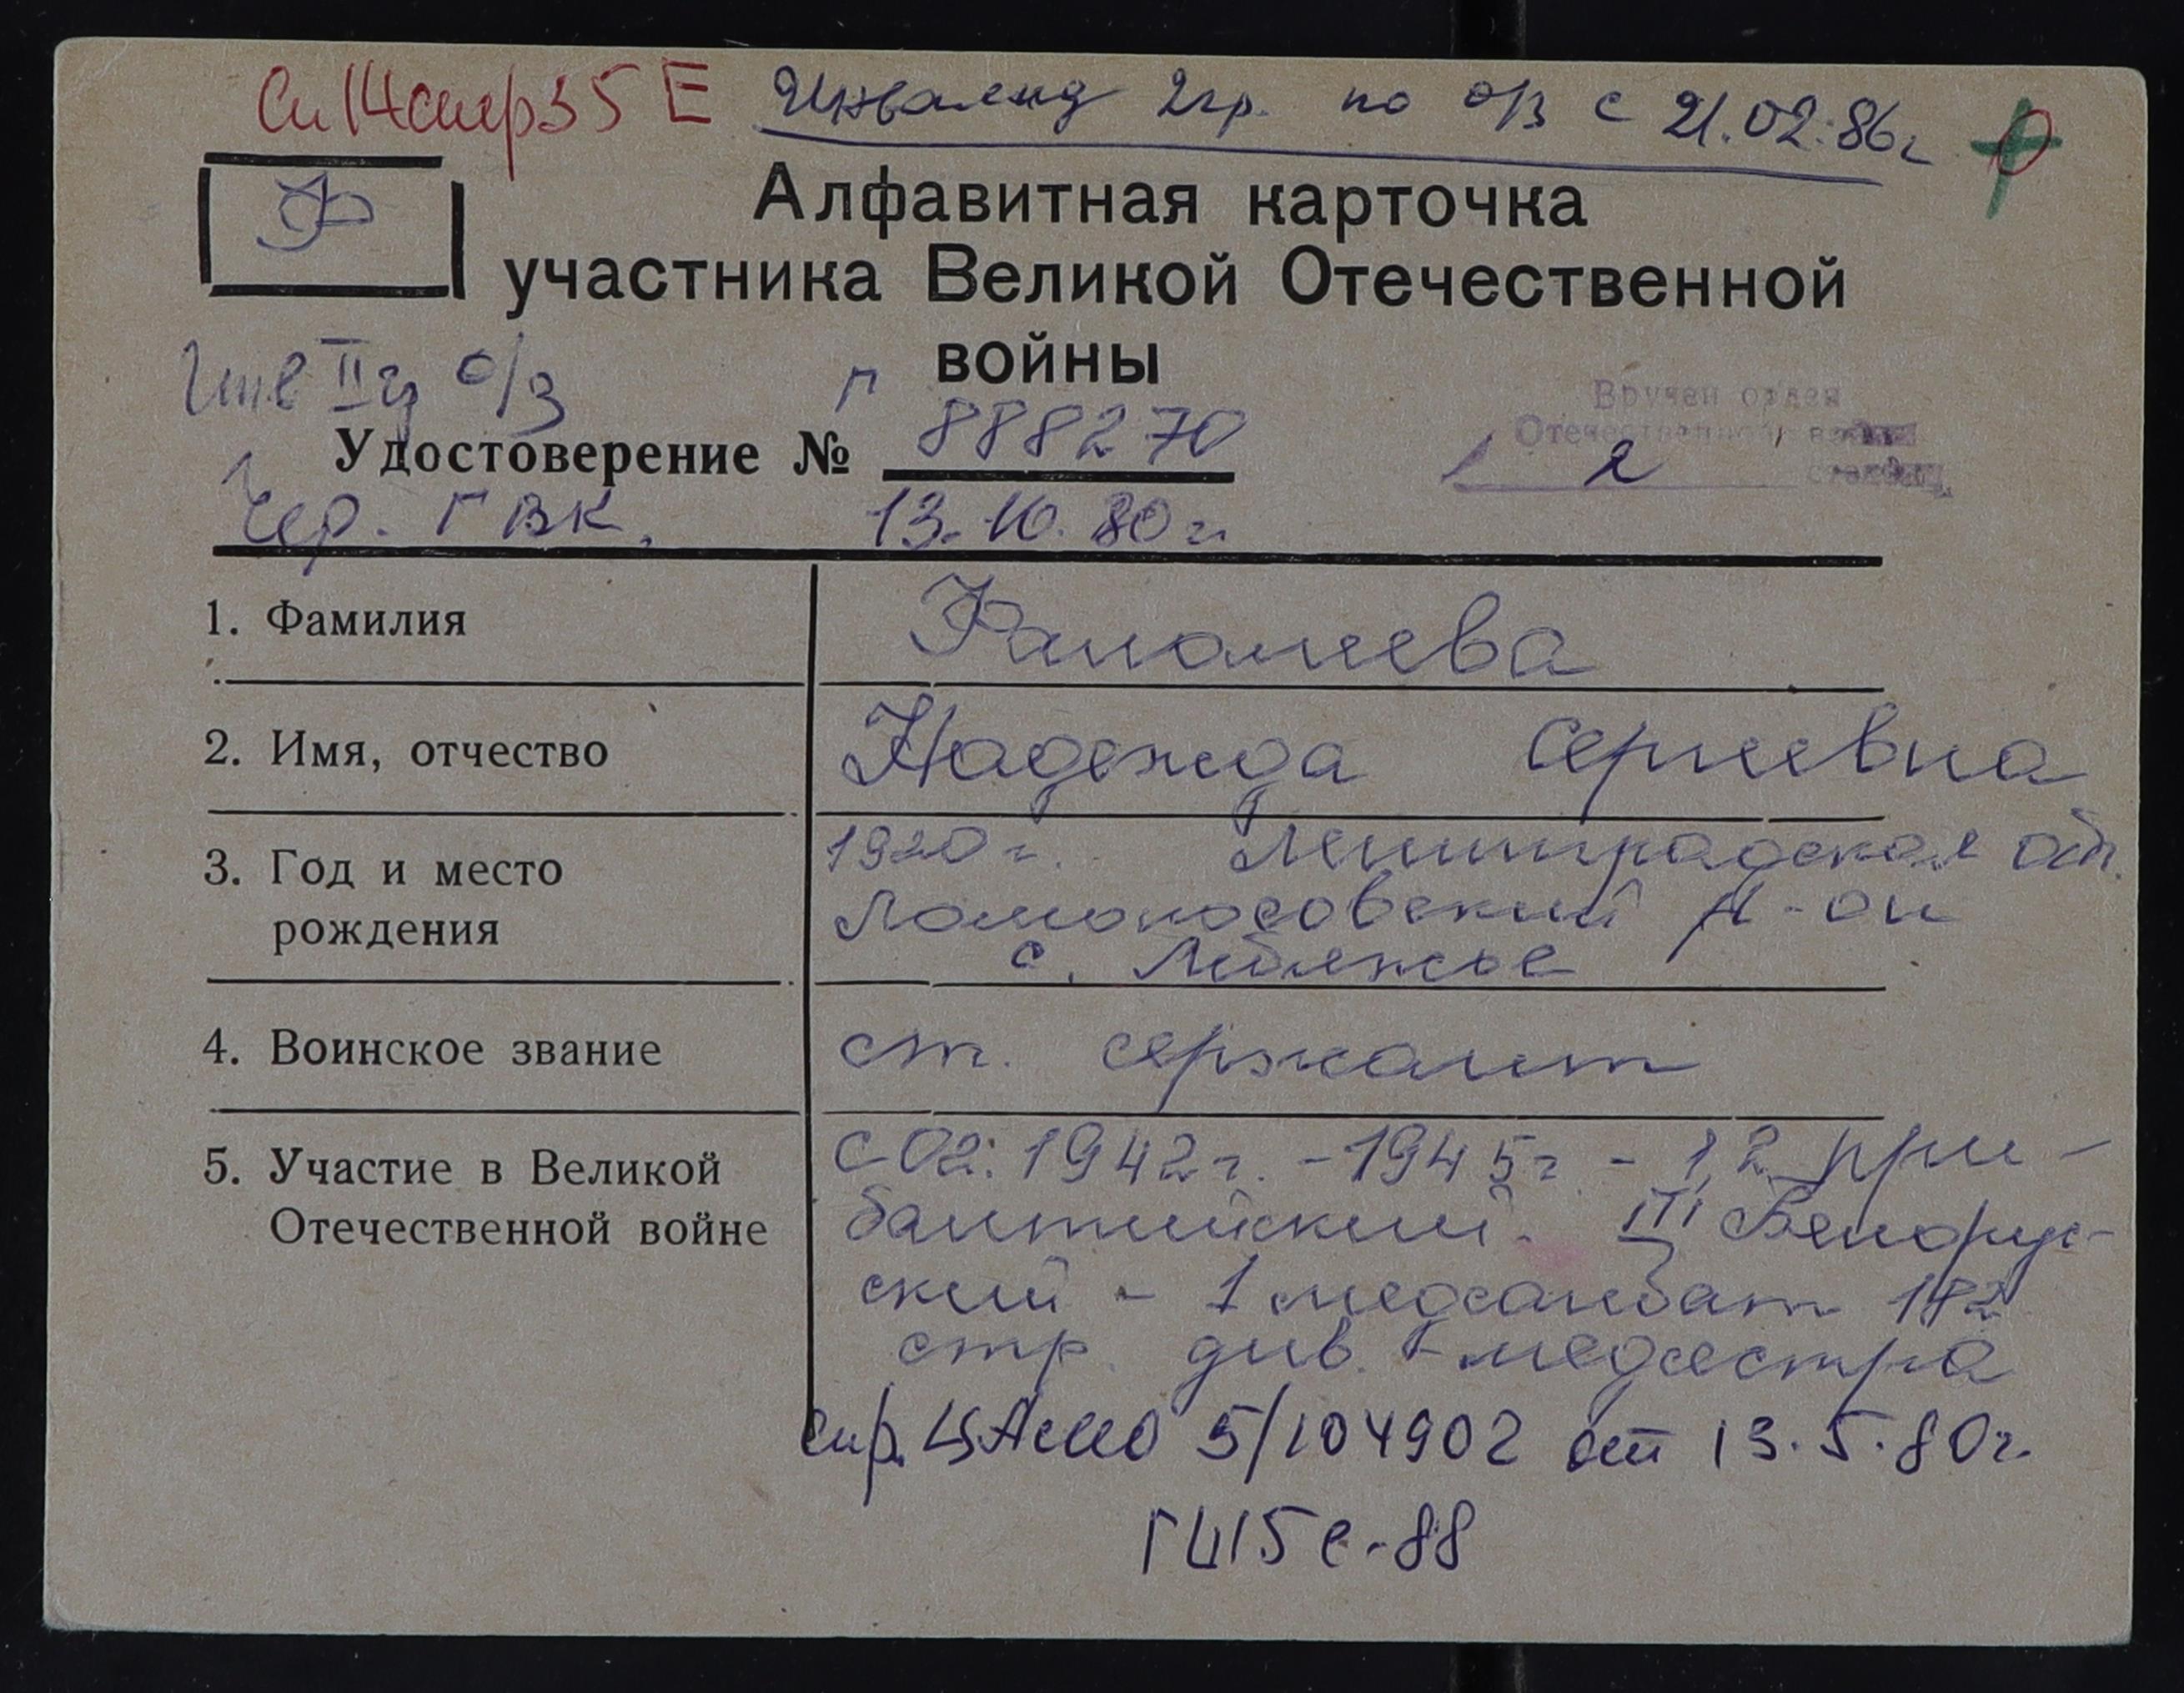 Инвалид 2гр. по о/з с 21.02.86г
Ф
Алфавитная карточка
участника Великой Отечественной
войны
Инв II гр о/з
Г
Вручен орден
Отечественной войны
2 степени
Удостоверение № 888270
Чер. ГВК. 13.10.80 г.
1. Фамилия
Надежда Сергеевна
2. Имя, отчество
3. Год и место
рождения
1920 г. Ленинградская обл.
Ломоносовский р-он
с. Лебяжье
4. Воинское звание
ст. сержант
5. Участие в Великой
Отечественной войне
с 02.1942г. - 1945г - 1,2 При-
балтийский. III Белорус-
ский - 1 медсанбат
стр. див. - медсестра
спр. ЦАМО 5/104902 от 13.5.80г.